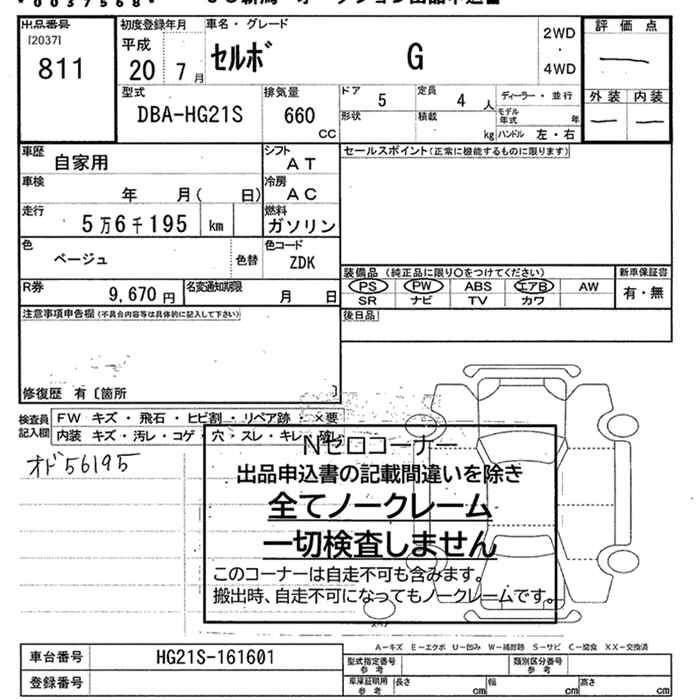 *0037568*
出品番号
[2037]
811
初度登録年月
平成
20 7月
車名・グレード
セルボ G
2WD
・
4WD
評価点
外装 内装
型式
DBA-HG21S
排気量
660
cc
ドア
5
定員
4 人
形状
積載
kg
ディーラー・並行
モデル年式 年
ハンドル 左・右
車歴
自家用
シフト
AT
セールスポイント(正常に機能するものに限ります)
車検
年 月( 日)
冷房
AC
走行
5万6千195 km
燃料
ガソリン
色
ベージュ
色替
色コード
ZDK
R券
9,670円
名変通知期限
月 日
装備品 (純正品に限り○をつけてください)
PS PW ABS エアB AW
SR ナビ TV カワ
新車保証書
有・無
注意事項申告欄(不具合内容等は具体的に記入して下さい)
後日品
修復歴 有〔箇所 〕
検査員記入欄
FW キズ・飛石・ヒビ割・リペア跡・×要
内装 キズ・汚レ・コゲ・穴・スレ・キレ・破レ
オド56195
Nゼロコーナー
出品申込書の記載間違いを除き
全てノークレーム
一切検査しません
このコーナーは自走不可も含みます。
搬出時、自走不可になってもノークレームです。
A-キズ E-エクボ U-凹み W-補修跡 S-サビ C-腐食 XX-交換済
車台番号
HG21S-161601
登録番号
型式指定番号 参考
類別区分番号 参考
車庫証明用 参考
長さ cm
幅 cm
高さ cm